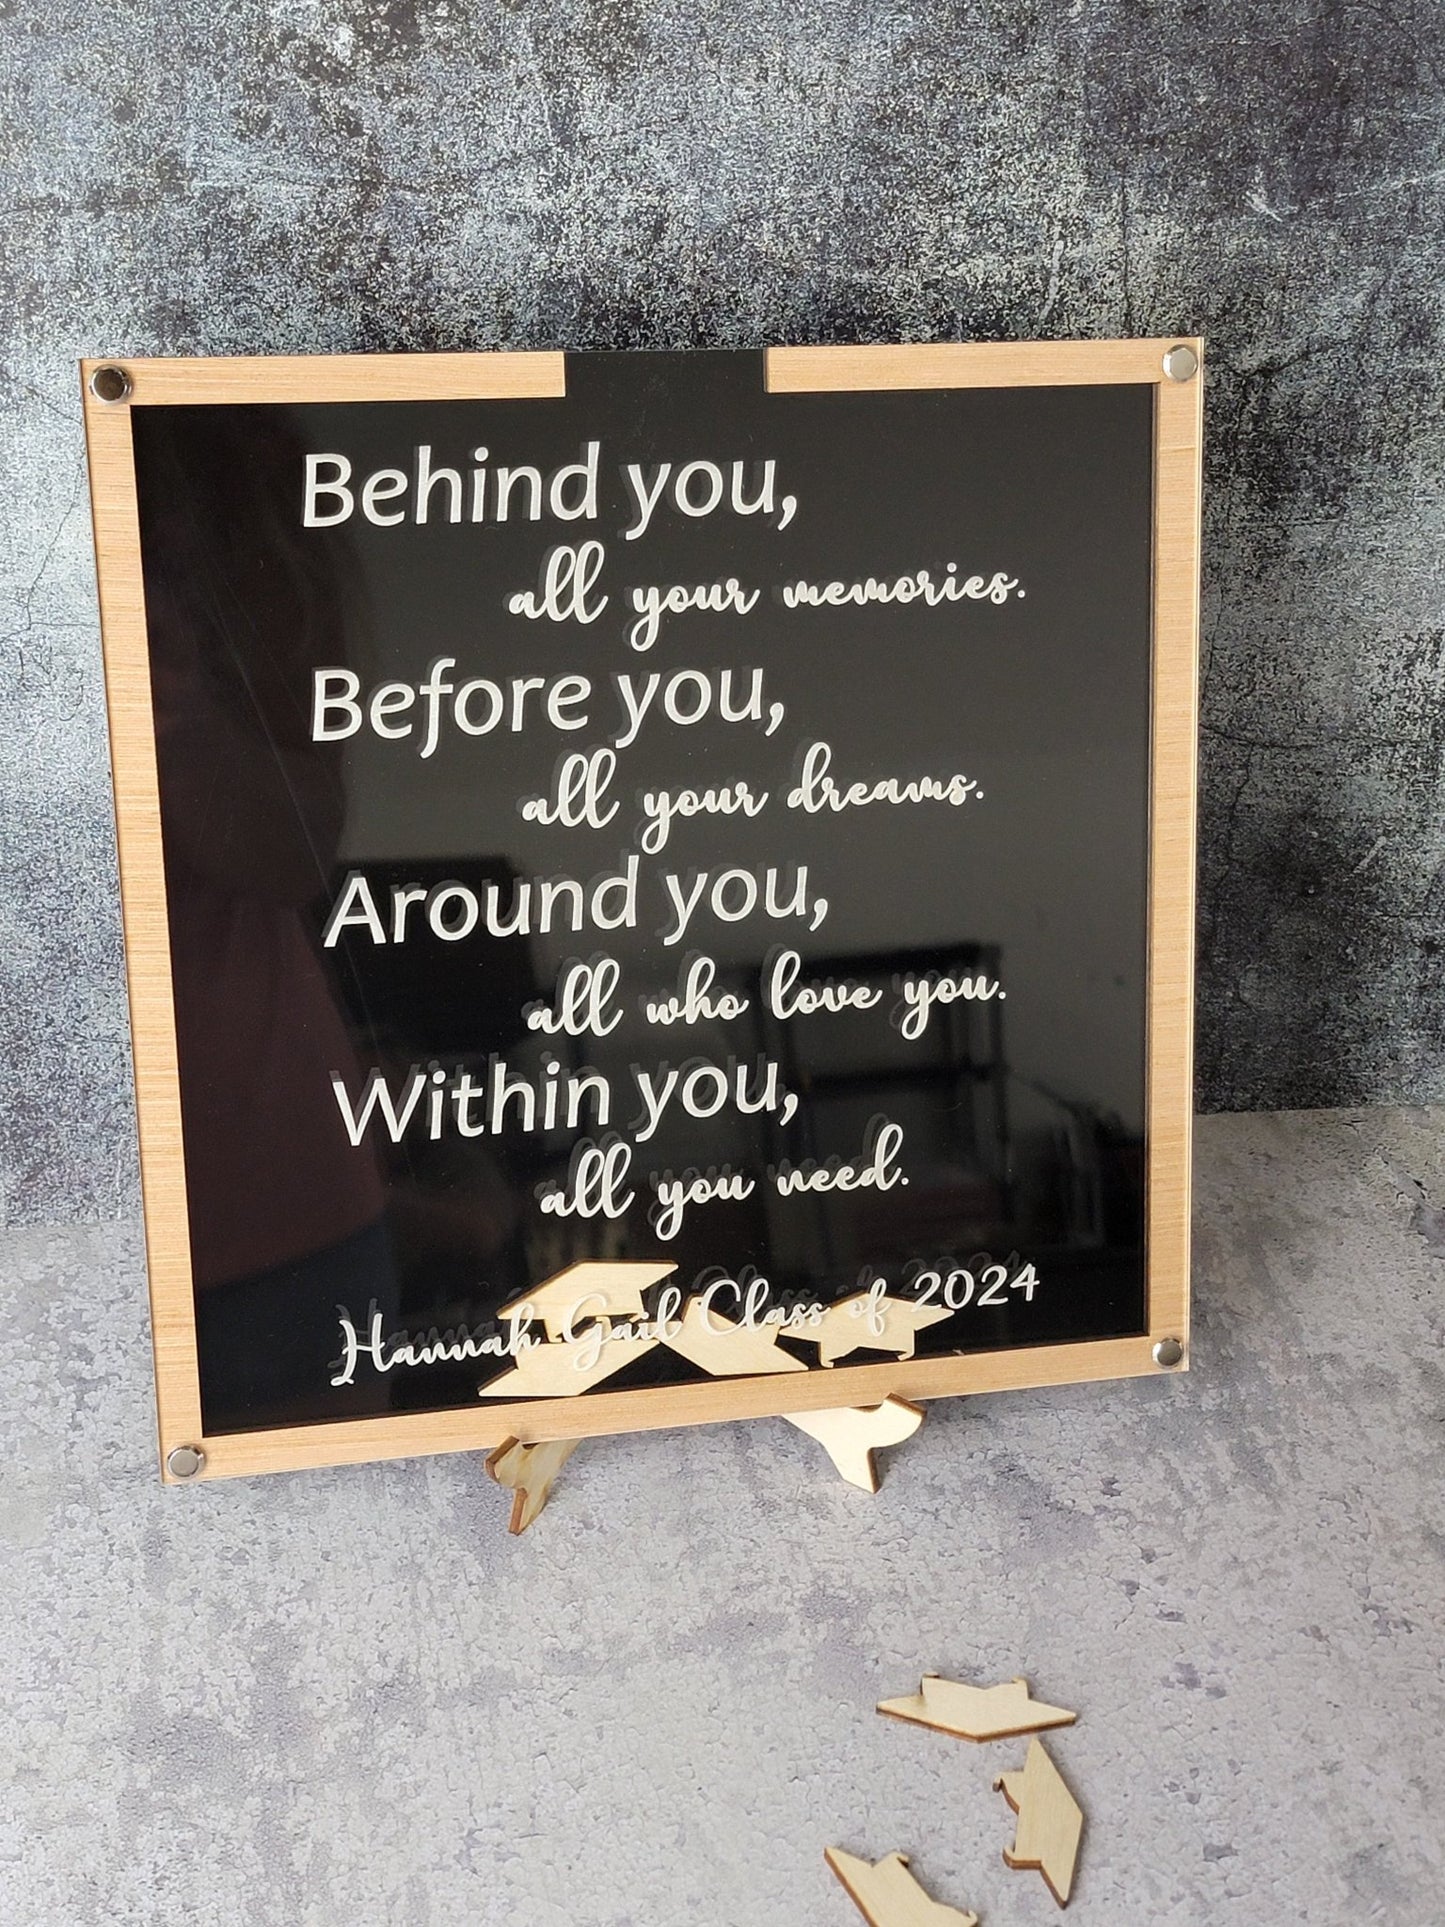 Behind you,
all your memories.
Before you,
all your dreams.
Around you,
all who love you.
Within you,
all you need.
Hannah Gail Class of 2024